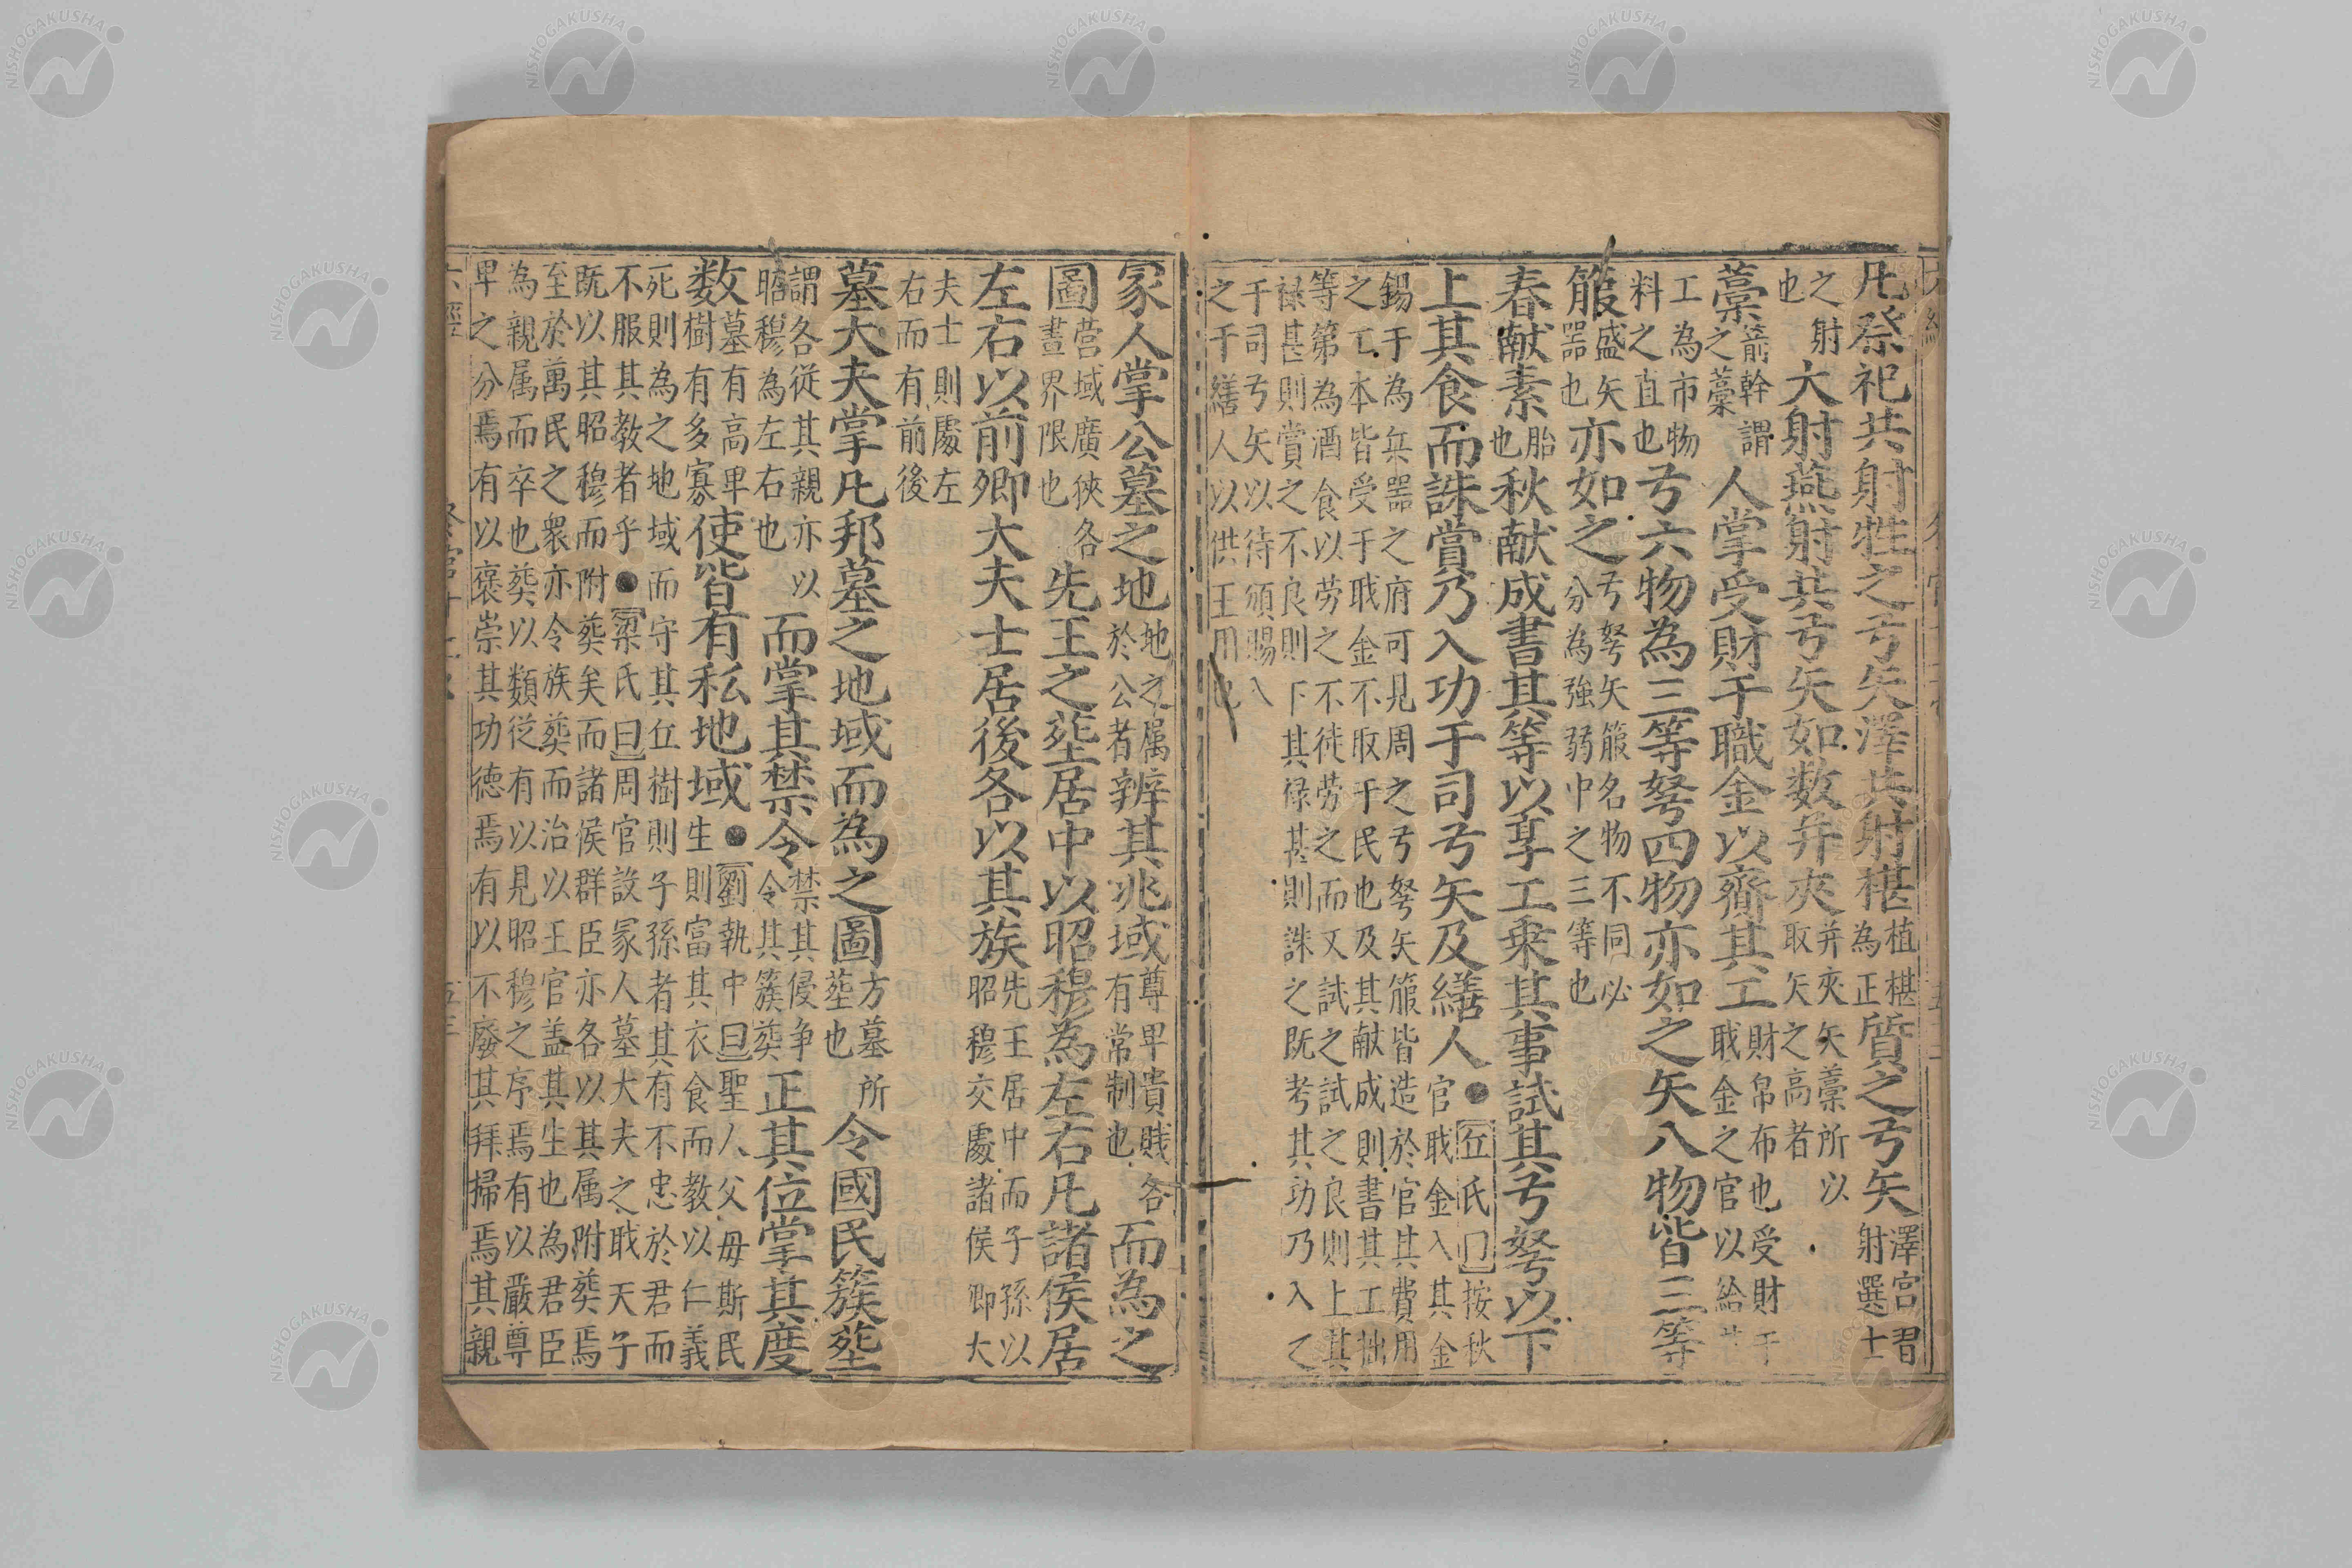 凡祭祀共射牲之弓矢澤共射椹植椹為正質之弓矢澤宮君射選士
之射也大射燕射共弓矢如数并夾并夾矢藁所以取矢之高者
藁箭幹謂之藁人掌受財于職金以齎其工財帛布也受財于職金之官以給
工為市物料之直也弓六物為三等弩四物亦如之矢八物皆三等
箙盛矢器也亦如之弓弩矢箙名物不同必分為強弱中之三等也
春献素胎也秋献成書其等以享工乗其事試其弓弩以下
上其食而誅賞乃入功于司弓矢及繕人●丘氏曰按秋官職金入其金
錫于為兵器之府可見周之弓弩矢箙皆造於官其費用
之工本皆受于職金不取于民也及其献成則書其工拙
等第為酒食以劳之不徒劳之而又試之試之良則上其
禄甚則賞之不良則下其禄甚則誅之既考其功乃入乙
于司弓矢以待頒賜入
之于繕人以供王用也
冡人掌公墓之地地之属於公者辨其兆域尊卑貴賎各有常制也而為之
圖营域廣狹各畫界限也先王之塟居中以昭穆為左右凡諸侯居
左右以前卿大夫士居後各以其族先王居中而子孫以昭穆交處諸侯卿大
夫士則處左右而有前後
墓大夫掌凡邦墓之地域而為之圖方墓所塟也令國民簇塟
謂各從其親亦以昭穆為左右也而掌其禁令禁其侵争令其簇塟正其位掌其度
数墓有高卑樹有多寡使皆有私地域●劉執中曰聖人父毋斯民生則富其衣食而教以仁義
死則為之地域而守其丘樹則子孫者其有不忠於君而
不服其教者乎●梁氏曰周官設冡人墓大夫之職天子
既以其昭穆而附塟矣而諸侯群臣亦各以其属附塟焉
至於萬民之衆亦令族塟而治以王官盖其生也為君臣
為親属而卒也塟以類從有以見昭穆之序焉有以嚴尊
卑之分焉有以褒崇其功徳焉有以不廢其拜掃焉其親